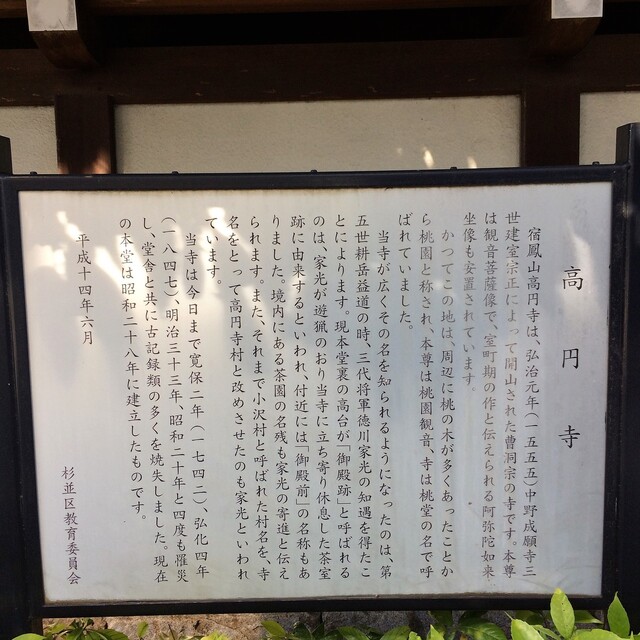 高円寺
宿鳳山高円寺は、弘治元年(一五五五)中野成願寺三
世建室宗正によって開山された曹洞宗の寺です。本尊
は観音菩薩像で、室町期の作と伝えられる阿弥陀如来
坐像も安置されています。
かつてこの地は、周辺に桃の木が多くあったことか
ら桃園と称され、本尊は桃園観音、寺は桃堂の名で呼
ばれていました。
当寺が広くその名を知られるようになったのは、第
五世耕岳益道の時、三代将軍徳川家光の知遇を得たこ
とによります。現本堂裏の高台が「御殿跡」と呼ばれる
のは、家光が遊猟のおり当寺に立ち寄り休息した茶室
跡に由来するといわれ、付近には「御殿前」の名称もあ
りました。境内にある茶園の名残も家光の寄進と伝え
られます。また、それまで小沢村と呼ばれた村名を、寺
名をとって高円寺村と改めさせたのも家光といわれ
ています。
当寺は今日まで寛保二年(一七四二)、弘化四年
(一八四七)、明治三十三年、昭和二十年と四度も罹災
し、堂舎と共に古記録類の多くを焼失しました。現在
の本堂は昭和二十八年に建立したものです。
平成十四年六月
杉並区教育委員会